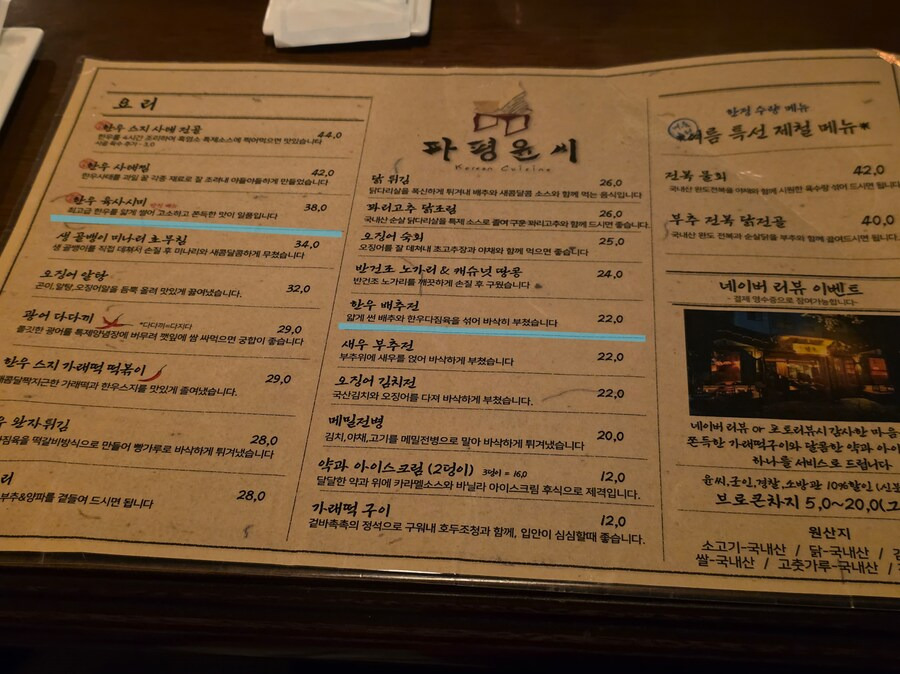 요리
한우 스지 사태 전골 44,0
한우를 4시간 조리하여 흑염소 특제소스에 찍어먹으면 맛있습니다
한우 사태찜 42,0
한우사태를 과일 꿀 각종 재료로 잘 조려내 야들야들하게 만들었습니다
한우 육사시미 38,0
최고급 한우를 얇게 썰어 고소하고 쫀득한 맛이 일품입니다
생 골뱅이 미나리 초무침 34,0
생 골뱅이를 직접 데쳐서 손질 후 미나리와 새콤달콤하게 무쳤습니다
오징어 알탕 32,0
곤이,알탕,오징어알을 듬뿍 올려 맛있게 끓여냈습니다.
광어 다다끼 *다다끼=다지다 29,0
쫄깃한 광어를 특제양념장에 버무려 깻잎에 쌈 싸먹으면 궁합이 좋습니다
한우 스지 가래떡 떡볶이 29,0
매콤달짝지근한 가래떡과 한우스지를 맛있게 졸여냈습니다.
완자튀김 28,0
다짐육을 떡갈비방식으로 만들어 빵가루로 바삭하게 튀겼습니다
28,0
부추&양파를 곁들여 드시면 됩니다
파평윤씨
Korean Cuisine
닭 튀김 26,0
닭다리살을 폭신하게 튀겨내 배추와 새콤달콤 소스와 함께 먹는 음식입니다
꽈리고추 닭조림 26,0
국내산 순살 닭다리살을 특제 소스로 졸여 구운 꽈리고추와 함께 드시면 좋습니다.
오징어 숙회 25,0
오징어를 잘 데쳐내 초고추장과 야채와 함께 먹으면 좋습니다
반건조 노가리 & 캐슈넛 땅콩 24,0
반건조 노가리를 깨끗하게 손질 후 구웠습니다
한우 배추전 22,0
얇게 썬 배추와 한우다짐육을 섞어 바삭히 부쳤습니다
새우 부추전 22,0
부추위에 새우를 얹어 바삭하게 부쳤습니다
오징어 김치전 22,0
국산김치와 오징어를 다져 바삭하게 부쳤습니다.
메밀전병 20,0
김치,야채,고기를 메밀전병으로 말아 바삭하게 튀겨냈습니다.
약과 아이스크림 (2덩이) 3덩이 = 16,0 12,0
달달한 약과 위에 카라멜소스와 바닐라 아이스크림 후식으로 제격입니다.
가래떡 구이 12,0
겉바속촉의 정석으로 구워내 호두조청과 함께, 입안이 심심할때 좋습니다.
한정 수량 메뉴
여름 특선 제철 메뉴
전복 물회 42,0
국내산 완도전복을 야채와 함께 시원한 육수랑 섞어 드시면 됩니다.
부추 전복 닭전골 40,0
국내산 완도 전복과 순살닭을 부추와 함께 끓여드시면 됩니다.
네이버 리뷰 이벤트
- 결제 영수증으로 참여가능합니다-
네이버 리뷰 or 포토리뷰시 감사한 마음
쫀득한 가래떡구이와 달콤한 약과 아이
하나를 서비스로 드립니다
윤씨,군인,경찰,소방관 10%할인 (신분
브로큰차지 5,0~20,0
원산지
소고기-국내산 / 닭-국내산 /
쌀-국내산 / 고춧가루-국내산 /